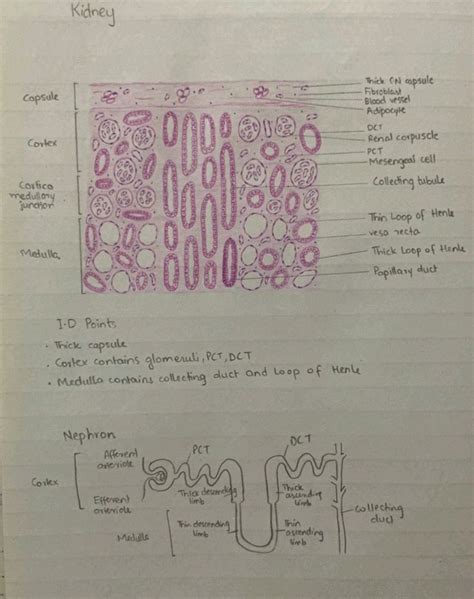 Kidney
Capsule
Cortex
Cortico
medullary
junction
Medulla
Thick CN capsule
Fibroblast
Blood vessel
Adipocyte
DCT
Renal corpuscle
PCT
Mesengeal cell
Collecting tubule
Thin Loop of Henle
vesa recta
Thick Loop of Henle
Papillary duct
I.D Points
• Thick capsule
• Cortex contains glomeruli, PCT, DCT
• Medulla contains collecting duct and Loop of Henle
Nephron
Cortex
Afferent
arteriole
Efferent
arteriole
PCT
DCT
Thick descending
limb
Thick
ascending
limb
Medulla
Thin descending
limb
Thin
ascending
limb
collecting
duct